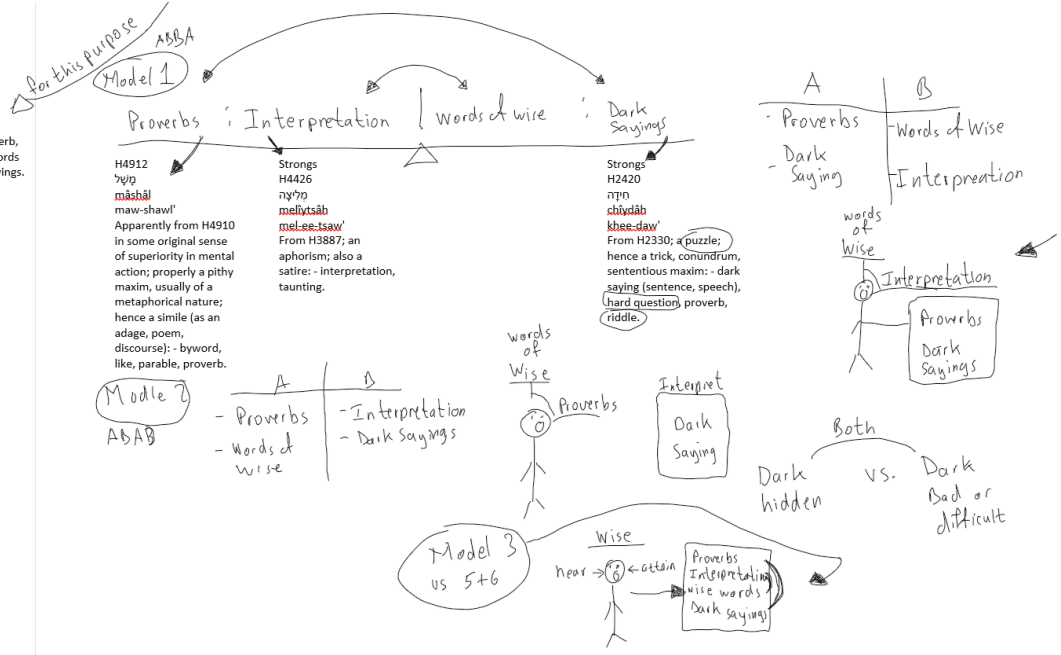 for this purpose
ABBA
Model 1
Proverbs : Interpretation | words of wise : Dark Sayings
erb,
ords
ings.
H4912
מָשָׁל
mâshâl
maw-shawl'
Apparently from H4910
in some original sense
of superiority in mental
action; properly a pithy
maxim, usually of a
metaphorical nature;
hence a simile (as an
adage, poem,
discourse): - byword,
like, parable, proverb.
Strongs
H4426
מְלִיצָה
melîytsâh
mel-ee-tsaw'
From H3887; an
aphorism; also a
satire: - interpretation,
taunting.
Strongs
H2420
חִידָה
chîydâh
khee-daw'
From H2330; a puzzle;
hence a trick, conundrum,
sententious maxim: - dark
saying (sentence, speech),
hard question, proverb,
riddle.
A B
- Proverbs
- Dark
Saying
- Words of Wise
- Interpreation
words
of
Wise
Interpretation
Proverbs
Dark
Sayings
Modle 2
ABAB
A B
- Proverbs
- Words of
wise
- Interpretation
- Dark Sayings
words
of
Wise
Proverbs
Interpret
Dark
Saying
Both
Dark
hidden
vs.
Dark
Bad or
difficult
Model 3
vs 5+6
Wise
hear
attain
Proverbs
Interpretation
wise words
Dark sayings